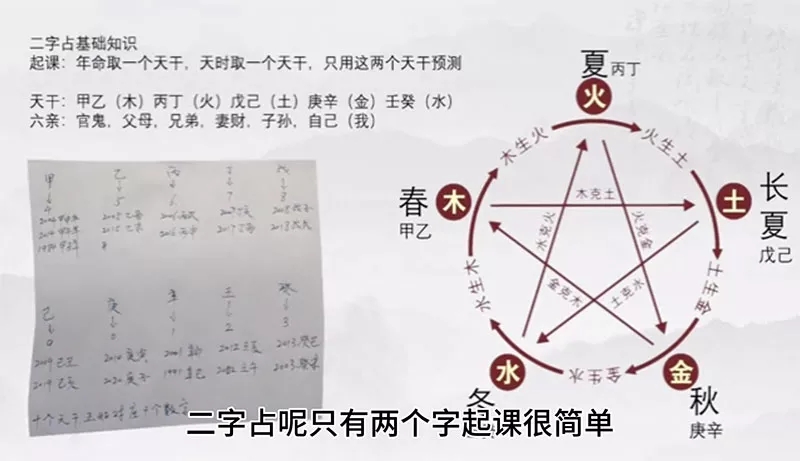 二字占基础知识
起课：年命取一个天干，天时取一个天干，只用这两个天干预测
天干：甲乙（木）丙丁（火）戊己（土）庚辛（金）壬癸（水）
六亲：官鬼，父母，兄弟，妻财，子孙，自己（我）
甲 乙 丙 丁 戊
4 5 6 7 8
己 庚 辛 壬 癸
0 1 2 3
2009 己丑 2010 庚寅 2012 壬辰 2013 癸巳
2019 己亥 2020 庚子 2002 壬午 2003 癸未
十个天干正好对应十个数字
夏 丙丁
火
木生火
火生土
春
甲乙
木
木克土
土
长夏
戊己
水克火
火克金
水生木
金克木
土克水
土生金
水
金生水
金
冬
秋
庚辛
二字占呢只有两个字起课很简单